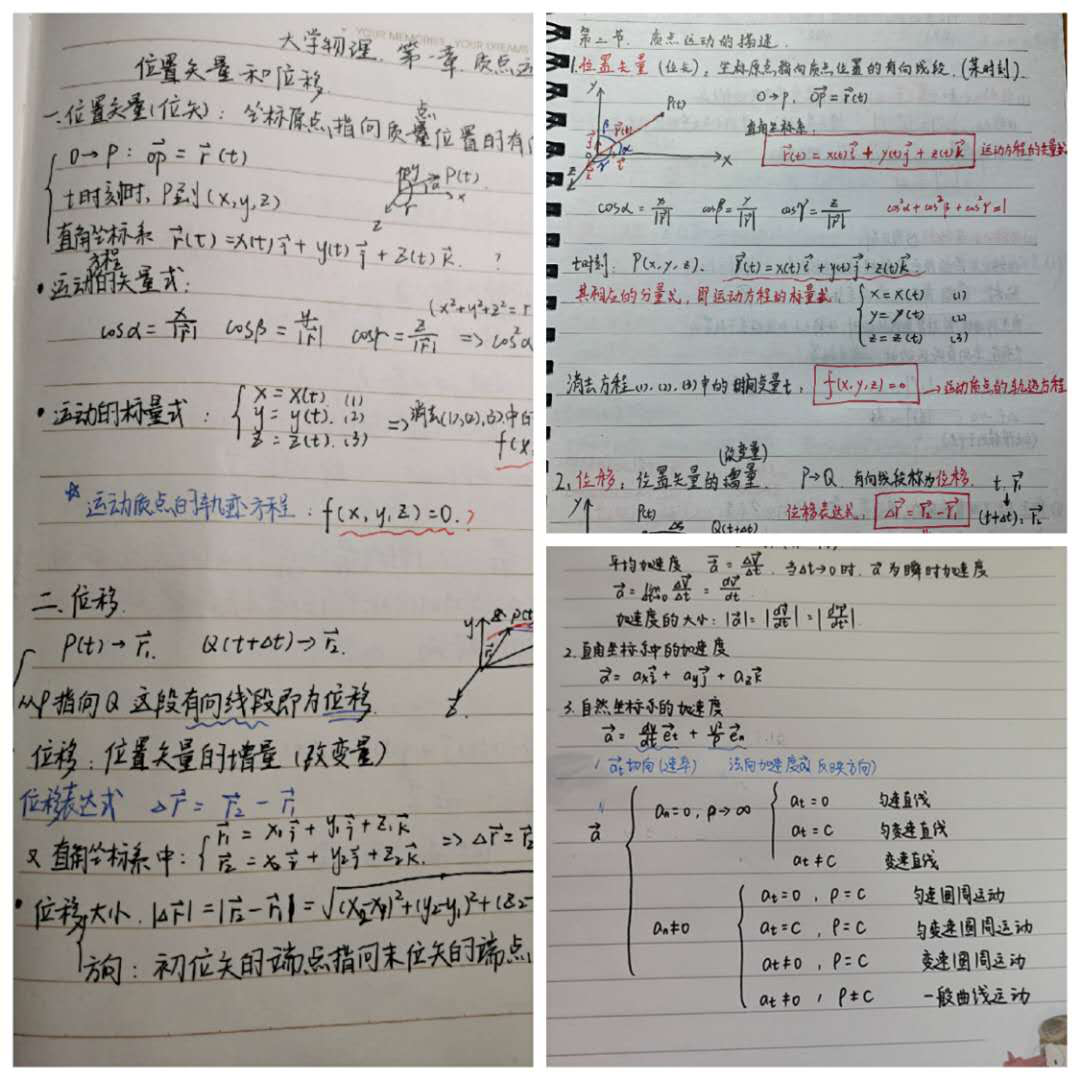 YOUR MEMORIES , YOUR DREAMS
大学物理. 第一章. 质点运
位置矢量和位移.
一.位置矢量(位矢): 坐标原点指向质点位置的有
O→P: \vec{OP} = \vec{r}(t)
t时刻时, P到(x,y,z)
y P(t).
x
z
直角坐标系 \vec{r}(t)=x(t)\vec{i}+y(t)\vec{j}+z(t)\vec{k}. ?
•运动方程的矢量式:
(x²+y²+z²=r
cosα=x/|\vec{r}| cosβ=y/|\vec{r}| cosγ=z/|\vec{r}| => cos²α
•运动的标量式: { x=x(t). (1)
y=y(t). (2) => 消去(1),(2),(3).中的
z=z(t). (3) f(x,
☆ 运动质点的轨迹方程: f(x,y,z)=0.?
二.位移.
P(t)→\vec{r}₁. Q(t+Δt)→\vec{r}₂.
y P(t)
z
从P指向Q这段有向线段即为位移.
位移: 位置矢量的增量(改变量)
位移表达式 Δ\vec{r}=\vec{r}₂-\vec{r}₁
又直角坐标系中: { \vec{r}₁=x₁\vec{i}+y₁\vec{j}+z₁\vec{k}
\vec{r}₂=x₂\vec{i}+y₂\vec{j}+z₂\vec{k}. => Δ\vec{r}=\vec{r}₂
•位移大小. |Δ\vec{r}|=|\vec{r}₂-\vec{r}₁|=√(x₂-x₁)²+(y₂-y₁)²+(z₂-
方向: 初位矢的端点指向末位矢的端点
第二节. 质点运动的描述.
1.位置矢量(位矢): 坐标原点指向质点位置的有向线段. (某时刻)
O→P, \vec{OP}=\vec{r}(t)
y P(t)
x
z
直角坐标系:
\vec{r}(t)=x(t)\vec{i}+y(t)\vec{j}+z(t)\vec{k} 运动方程的矢量式
cosα=x/|\vec{r}| cosβ=y/|\vec{r}| cosγ=z/|\vec{r}| cos²α+cos²β+cos²γ=1
t时刻: P(x,y,z). \vec{r}(t)=x(t)\vec{i}+y(t)\vec{j}+z(t)\vec{k}.
其相应的分量式, 即运动方程的标量式 { x=x(t) (1)
y=y(t) (2)
z=z(t) (3)
消去方程(1),(2),(3)中的时间变量t, f(x,y,z)=0 →运动质点的轨迹方程
(改变量)
2.位移: 位置矢量的增量. P→Q 有向线段称为位移. t, \vec{r}₁
y P(t) Δs Q(t+Δt) 位移表达式, Δ\vec{r}=\vec{r}₂-\vec{r}₁ (t+Δt), \vec{r}₂
平均加速度 \bar{a}=Δ\vec{v}/Δt. 当Δt→0时, \vec{a}为瞬时加速度
\vec{a}=lim Δt→0 Δ\vec{v}/Δt=d\vec{v}/dt
加速度的大小: |\vec{a}|=|d\vec{v}/dt|=|d\vec{v}/dt|.
2.直角坐标系中的加速度
\vec{a}=ax\vec{i}+ay\vec{j}+az\vec{k}
3.自然坐标系的加速度
\vec{a}=dv/dt \vec{e}t+v²/ρ \vec{e}n
切向(速率) 法向加速度 反映方向)
\vec{a} { an=0, ρ→∞ { at=0 匀速直线
at=C 匀变速直线
at≠C 变速直线
an≠0 { at=0, ρ=C 匀速圆周运动
at=C, ρ=C 匀变速圆周运动
at≠0, ρ=C 变速圆周运动
at≠0, ρ≠C 一般曲线运动